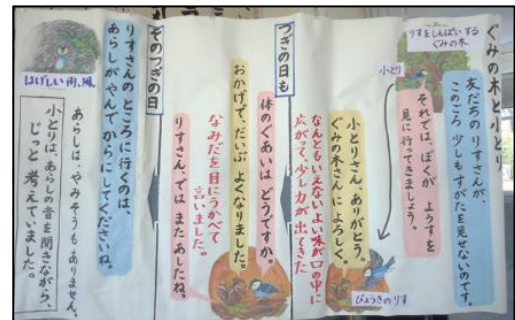 ぐみの木と小とり
りすをしんぱいする
ぐみの木
友だちの りすさんが、
このごろ 少しもすがたを見せないのです。
それでは、ぼくが ようすを
見に行ってきましょう。
小とり
小とりさん、ありがとう。
ぐみの木さんに よろしく。
なんともいえないよい味が口の中に
広がって、少し力が出てきた
びょうきのりす
つぎの日も
体のぐあいは どうですか。
おかげで、だいぶ よくなりました。
なみだを目にうかべて
言いました。
りすさん、では またあしたね。
そのつぎの日
りすさんのところに行くのは、
あらしがやんでからにしてくださいね。
はげしい雨、風
あらしは、やみそうもありません。
小とりはあらしの音を聞きながら、
じっと 考えていました。